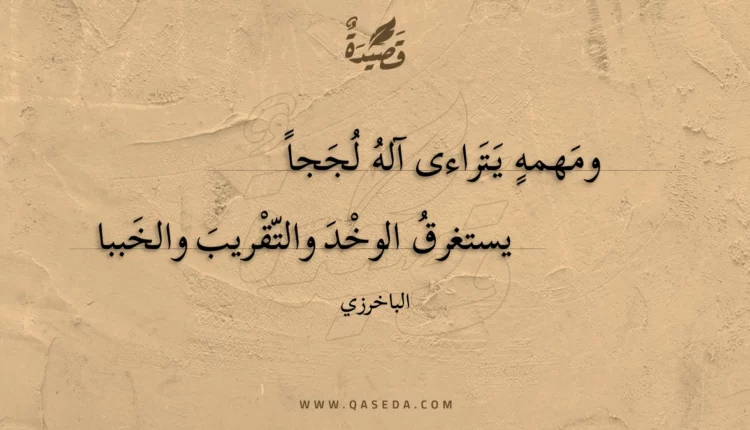 قَصِيدَةٌ
ومَهمهٍ يَتَراءى آلهُ لُجَجاً
يستغرقُ الوخْدَ والتّقْريبَ والخَببا
الباخرزي
WWW.QASEDA.COM